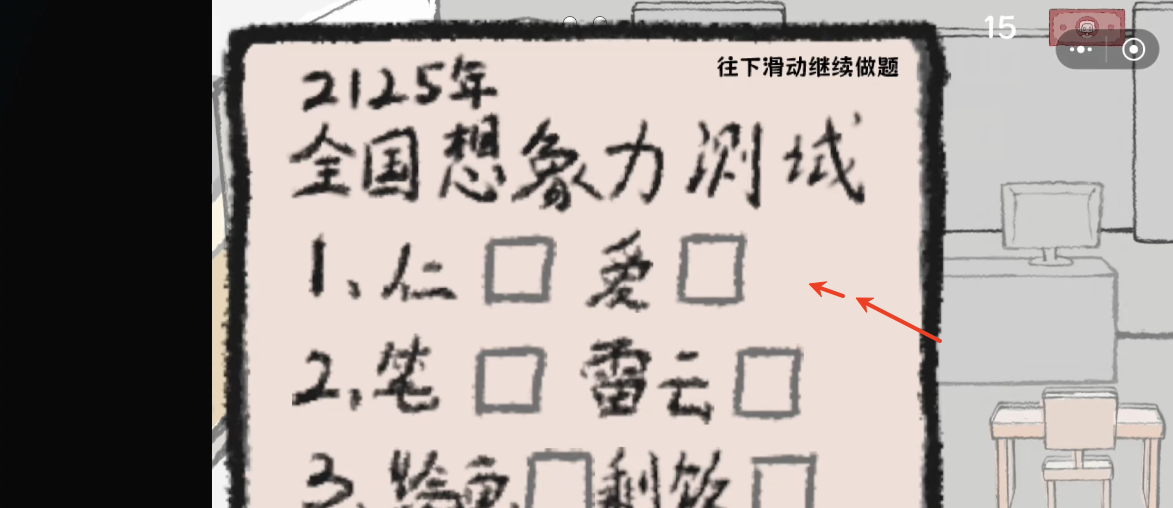 15
往下滑动继续做题
2125年
全国想象力测试
1、仁□爱□
2、笔□雷云□
3、绘画□剩饭□